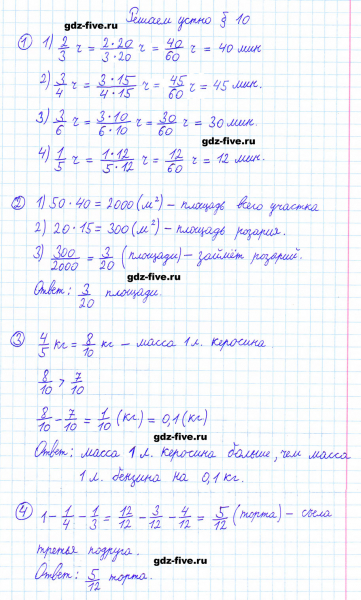 gdz-five.ru
Решаем устно § 10
1 1) 2/3 ч = 2·20/3·20 ч = 40/60 ч = 40 мин
2) 3/4 ч = 3·15/4·15 ч = 45/60 ч = 45 мин.
3) 3/6 ч = 3·10/6·10 ч = 30/60 ч = 30 мин.
gdz-five.ru
4) 1/5 ч = 1·12/5·12 ч = 12/60 ч = 12 мин.
2 1) 50·40 = 2000 (м²) – площадь всего участка
2) 20·15 = 300 (м²) – площадь розария.
3) 300/2000 = 3/20 (площади) – займёт розарий.
gdz-five.ru
Ответ: 3/20 площади.
3 4/5 кг = 8/10 кг – масса 1 л. керосина.
gdz-five.ru
8/10 > 7/10
8/10 - 7/10 = 1/10 (кг) = 0,1 (кг)
gdz-five.ru
Ответ: масса 1 л. керосина больше, чем масса
1 л. бензина на 0,1 кг.
gdz-five.ru
4 1 - 1/4 - 1/3 = 12/12 - 3/12 - 4/12 = 5/12 (торта) – съела
третья подруга.
gdz-five.ru
Ответ: 5/12 торта.